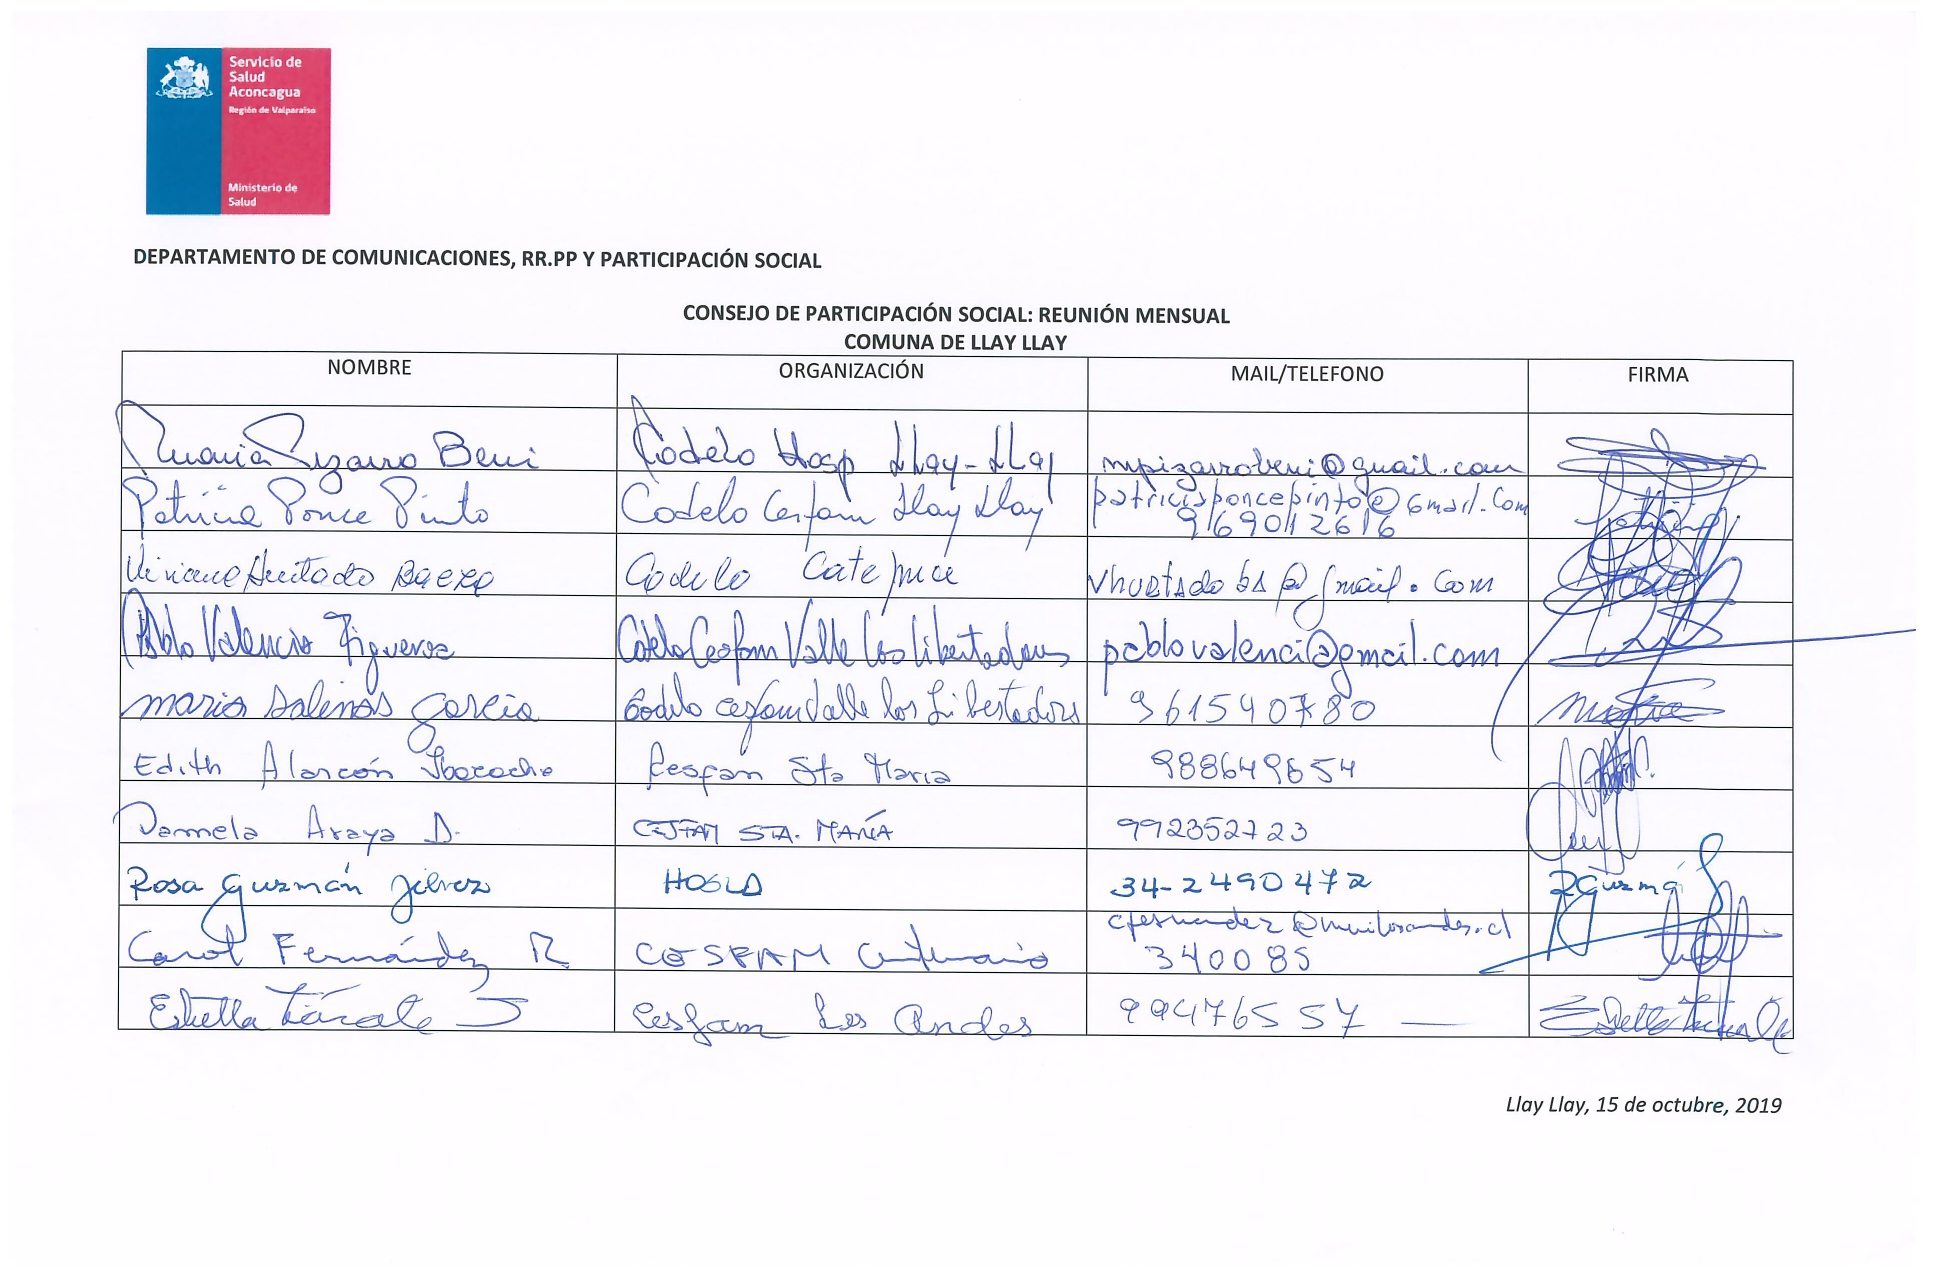 Servicio de
Salud
Aconcagua
Región de Valparaíso
Ministerio de
Salud
DEPARTAMENTO DE COMUNICACIONES, RR.PP Y PARTICIPACIÓN SOCIAL
CONSEJO DE PARTICIPACIÓN SOCIAL: REUNIÓN MENSUAL
COMUNA DE LLAY LLAY
NOMBRE ORGANIZACIÓN MAIL/TELEFONO FIRMA
Maria Pizarro Beni Codelo Hosp Llay-Llay mpizarrobeni@gmail.com
Patricia Ponce Pinto Codelo Cesfam Llay Llay patriciaponcepinto@Gmail.Com
969012616
Viviana Hurtado Baeza Codelo Catemu
Pablo Valencia Figueroa Codelo Cesfam Valle Los libertadores pablovalenci@gmail.com
maria Salinas Garcia Codelo cesfam Valle los Libertadores 961540780
Edith Alarcón Cesfam Sta Maria 988649654
Daniela Araya D. CESFAM STA. MARÍA 992352723
Rosa Guzmán HOSLA 34-2490472 RGuzmá
Carol Fernández R. CESFAM Centenario cfernandez@munilosandes.cl
340085
Estella Cesfam Los Andes 994765557
Llay Llay, 15 de octubre, 2019